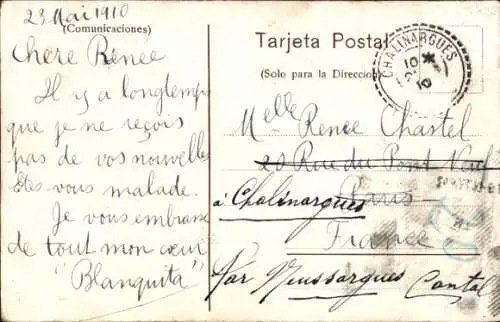 23 Mai 1910
(Comunicaciones)
Chere Renée
Il y a longtemps
que je ne reçois
pas de vos nouvelles
Etes-vous malade.
Je vous embrasse
de tout mon cœur
"Blanquita"
Tarjeta Postal
(Solo para la Direccion)
CHALINARGUES
10
10
Melle Renee Chastel
20 Rue du Pont Neuf
à Chalinargues
Paris
France
Par Neussargues Cantal